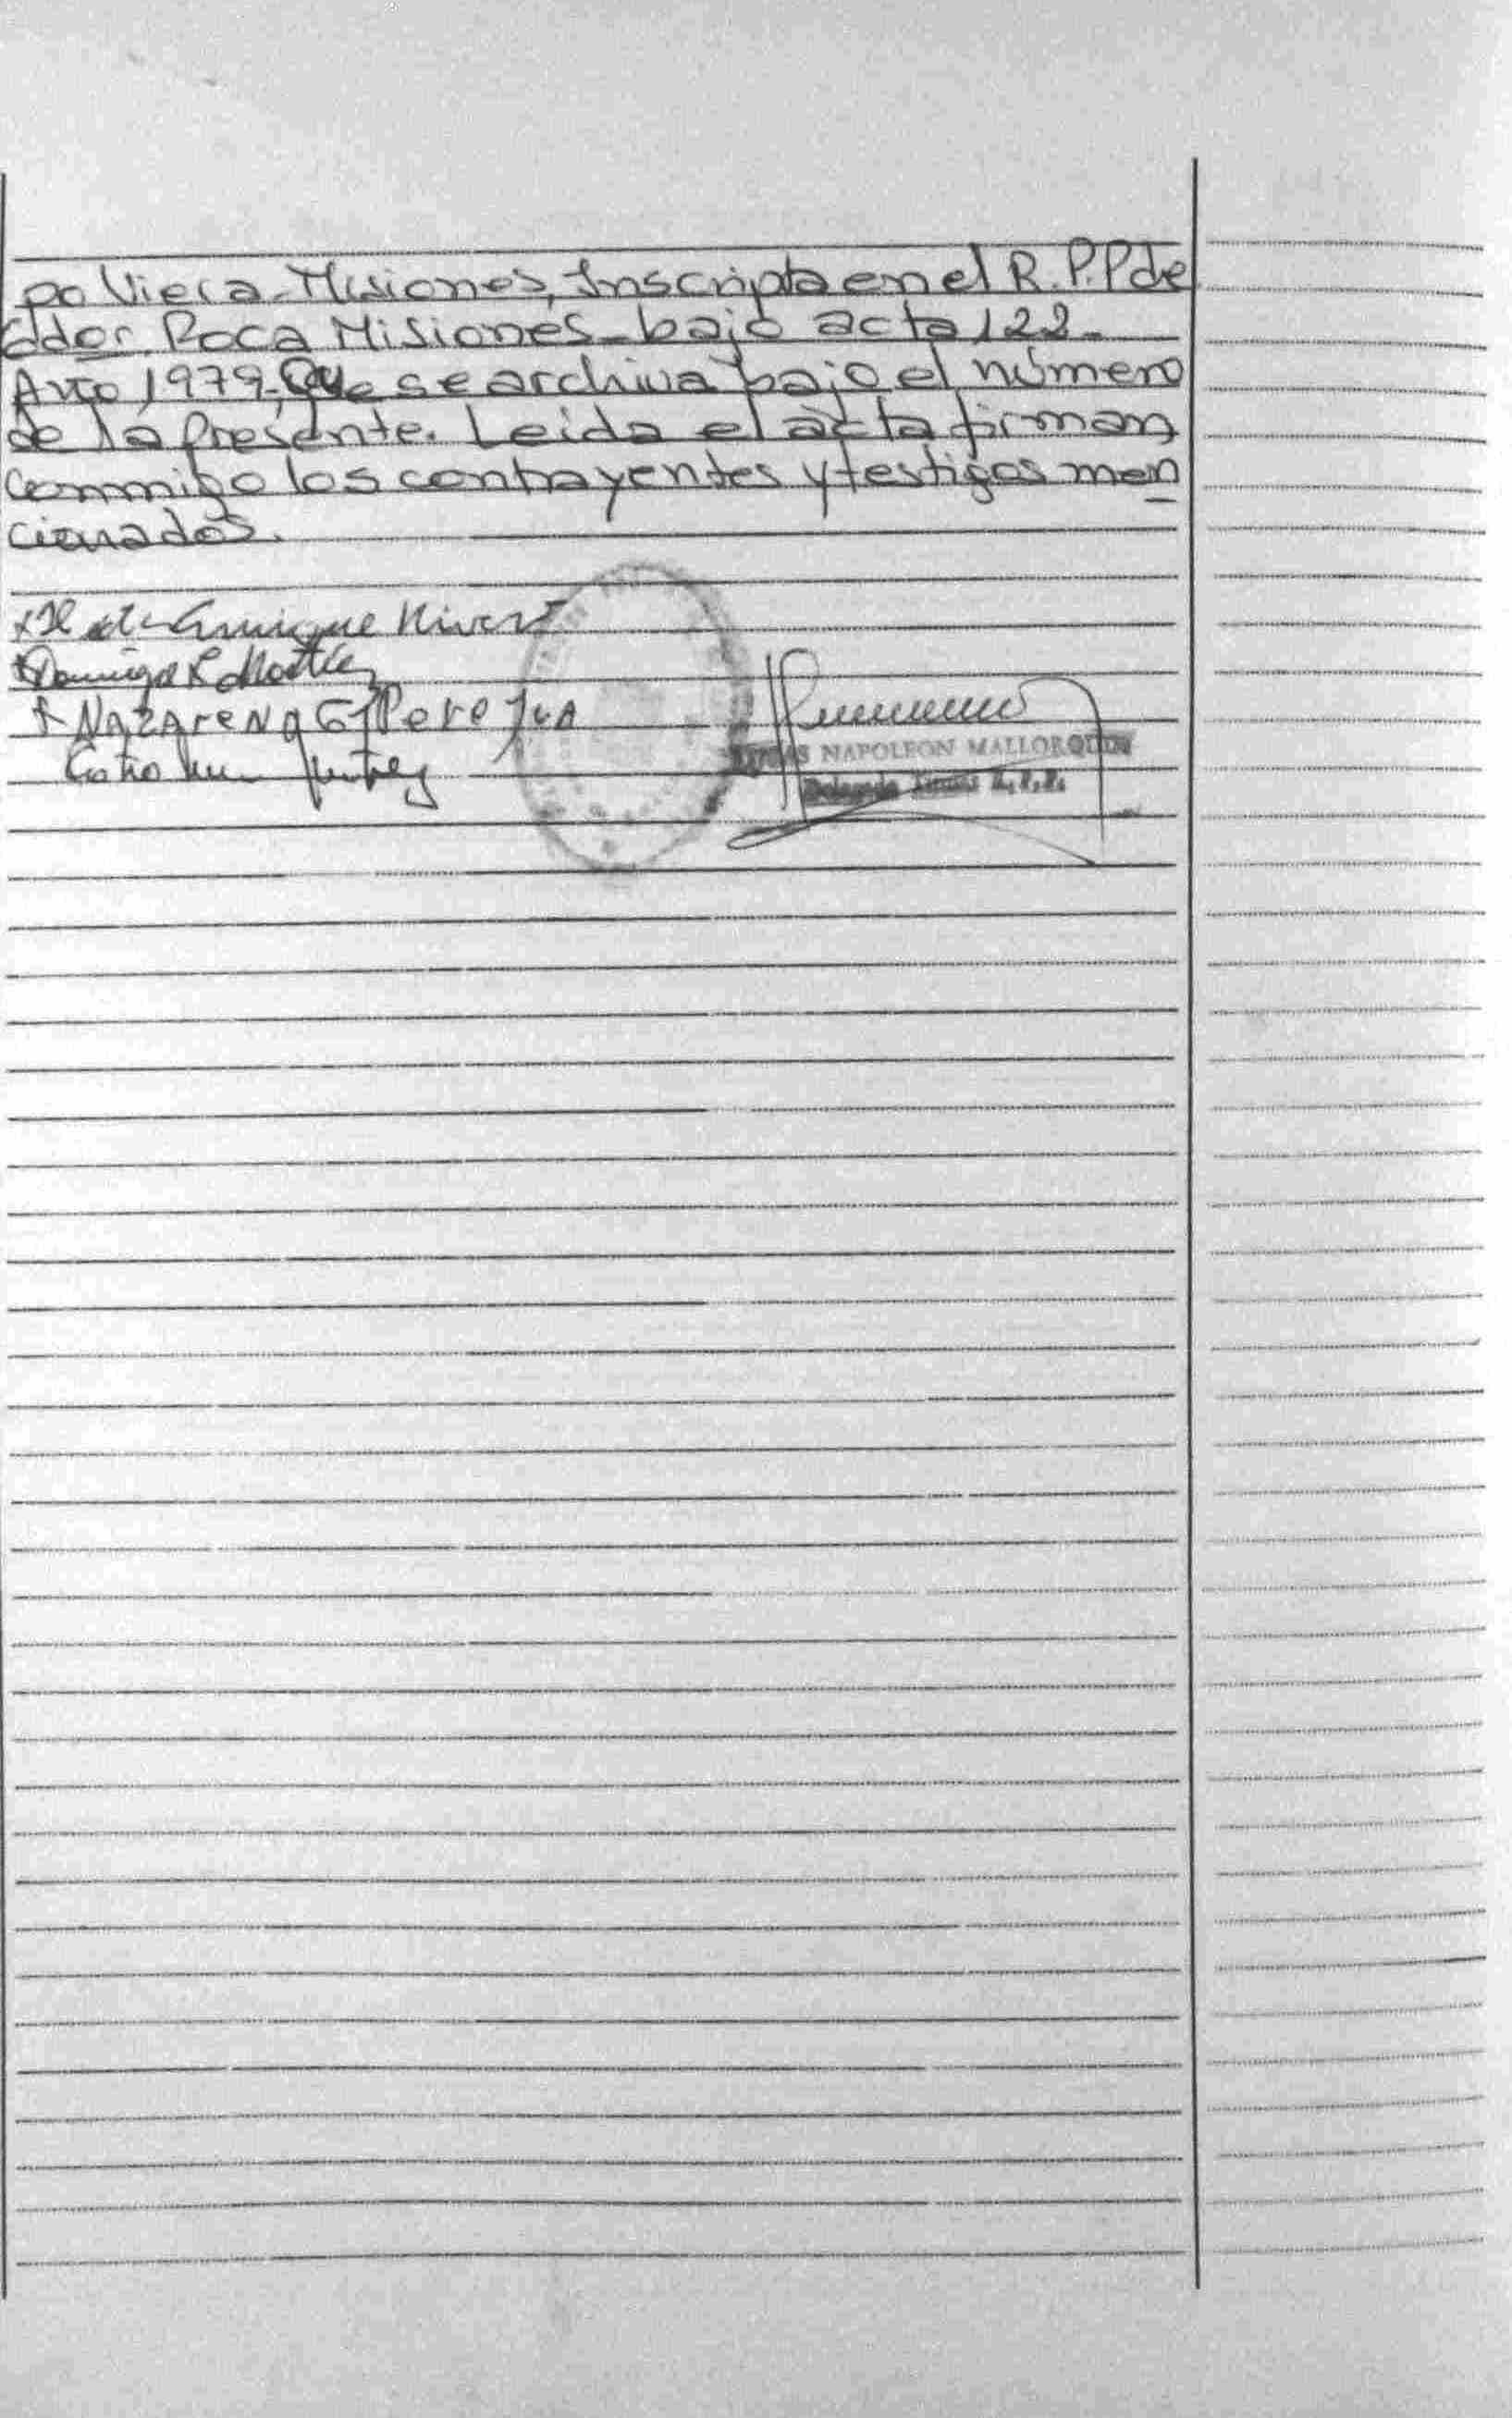 po Viera - Misiones, Inscripta en el R.P.P de
Gdor. Roca Misiones - bajo acta 122 -
Año 1979 - Que se archiva bajo el número
de la presente. Leída el acta firman
conmigo los contrayentes y testigos men
cionados.
Enrique
Nazareno G
NAPOLEON MALLORQUIN
Delegado R.P.P.